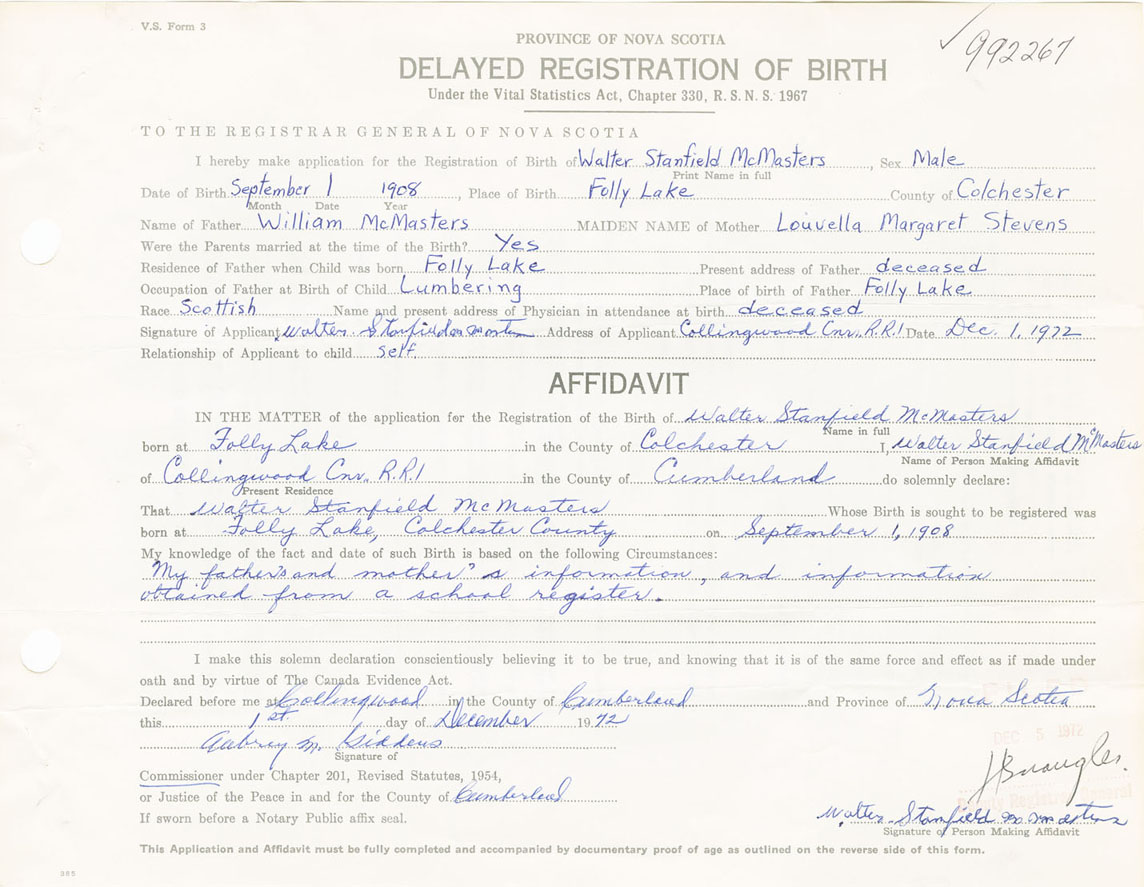 V.S. Form 3
992267
PROVINCE OF NOVA SCOTIA
DELAYED REGISTRATION OF BIRTH
Under the Vital Statistics Act, Chapter 330, R. S. N. S. 1967
TO THE REGISTRAR GENERAL OF NOVA SCOTIA
I hereby make application for the Registration of Birth of Walter Stanfield McMasters, Sex Male
Print Name in full
Date of Birth September 1 1908, Place of Birth Folly Lake County of Colchester
Month Date Year
Name of Father William McMasters MAIDEN NAME of Mother Louvella Margaret Stevens
Were the Parents married at the time of the Birth? Yes
Residence of Father when Child was born Folly Lake Present address of Father deceased
Occupation of Father at Birth of Child Lumbering Place of birth of Father Folly Lake
Race Scottish Name and present address of Physician in attendance at birth deceased
Signature of Applicant Walter Stanfield Address of Applicant Collingwood Cnr. R.R.1 Date Dec. 1, 1972
Relationship of Applicant to child self
AFFIDAVIT
IN THE MATTER of the application for the Registration of the Birth of Walter Stanfield McMasters
Name in full
born at Folly Lake in the County of Colchester I, Walter Stanfield McMasters
Name of Person Making Affidavit
of Collingwood Cnr. R.R.1 in the County of Cumberland do solemnly declare:
Present Residence
That Walter Stanfield McMasters Whose Birth is sought to be registered was
born at Folly Lake, Colchester County on September 1, 1908
My knowledge of the fact and date of such Birth is based on the following Circumstances:
My father's and mother's information, and information
obtained from a school register.
I make this solemn declaration conscientiously believing it to be true, and knowing that it is of the same force and effect as if made under
oath and by virtue of The Canada Evidence Act.
Declared before me at Collingwood in the County of Cumberland and Province of Nova Scotia
this 1st day of December 1972
DEC 5 1972
Aubrey M. Giddens
Signature of
Commissioner under Chapter 201, Revised Statutes, 1954,
or Justice of the Peace in and for the County of Cumberland
Deputy Registrar General
If sworn before a Notary Public affix seal.
Walter Stanfield McMasters
Signature of Person Making Affidavit
This Application and Affidavit must be fully completed and accompanied by documentary proof of age as outlined on the reverse side of this form.
385